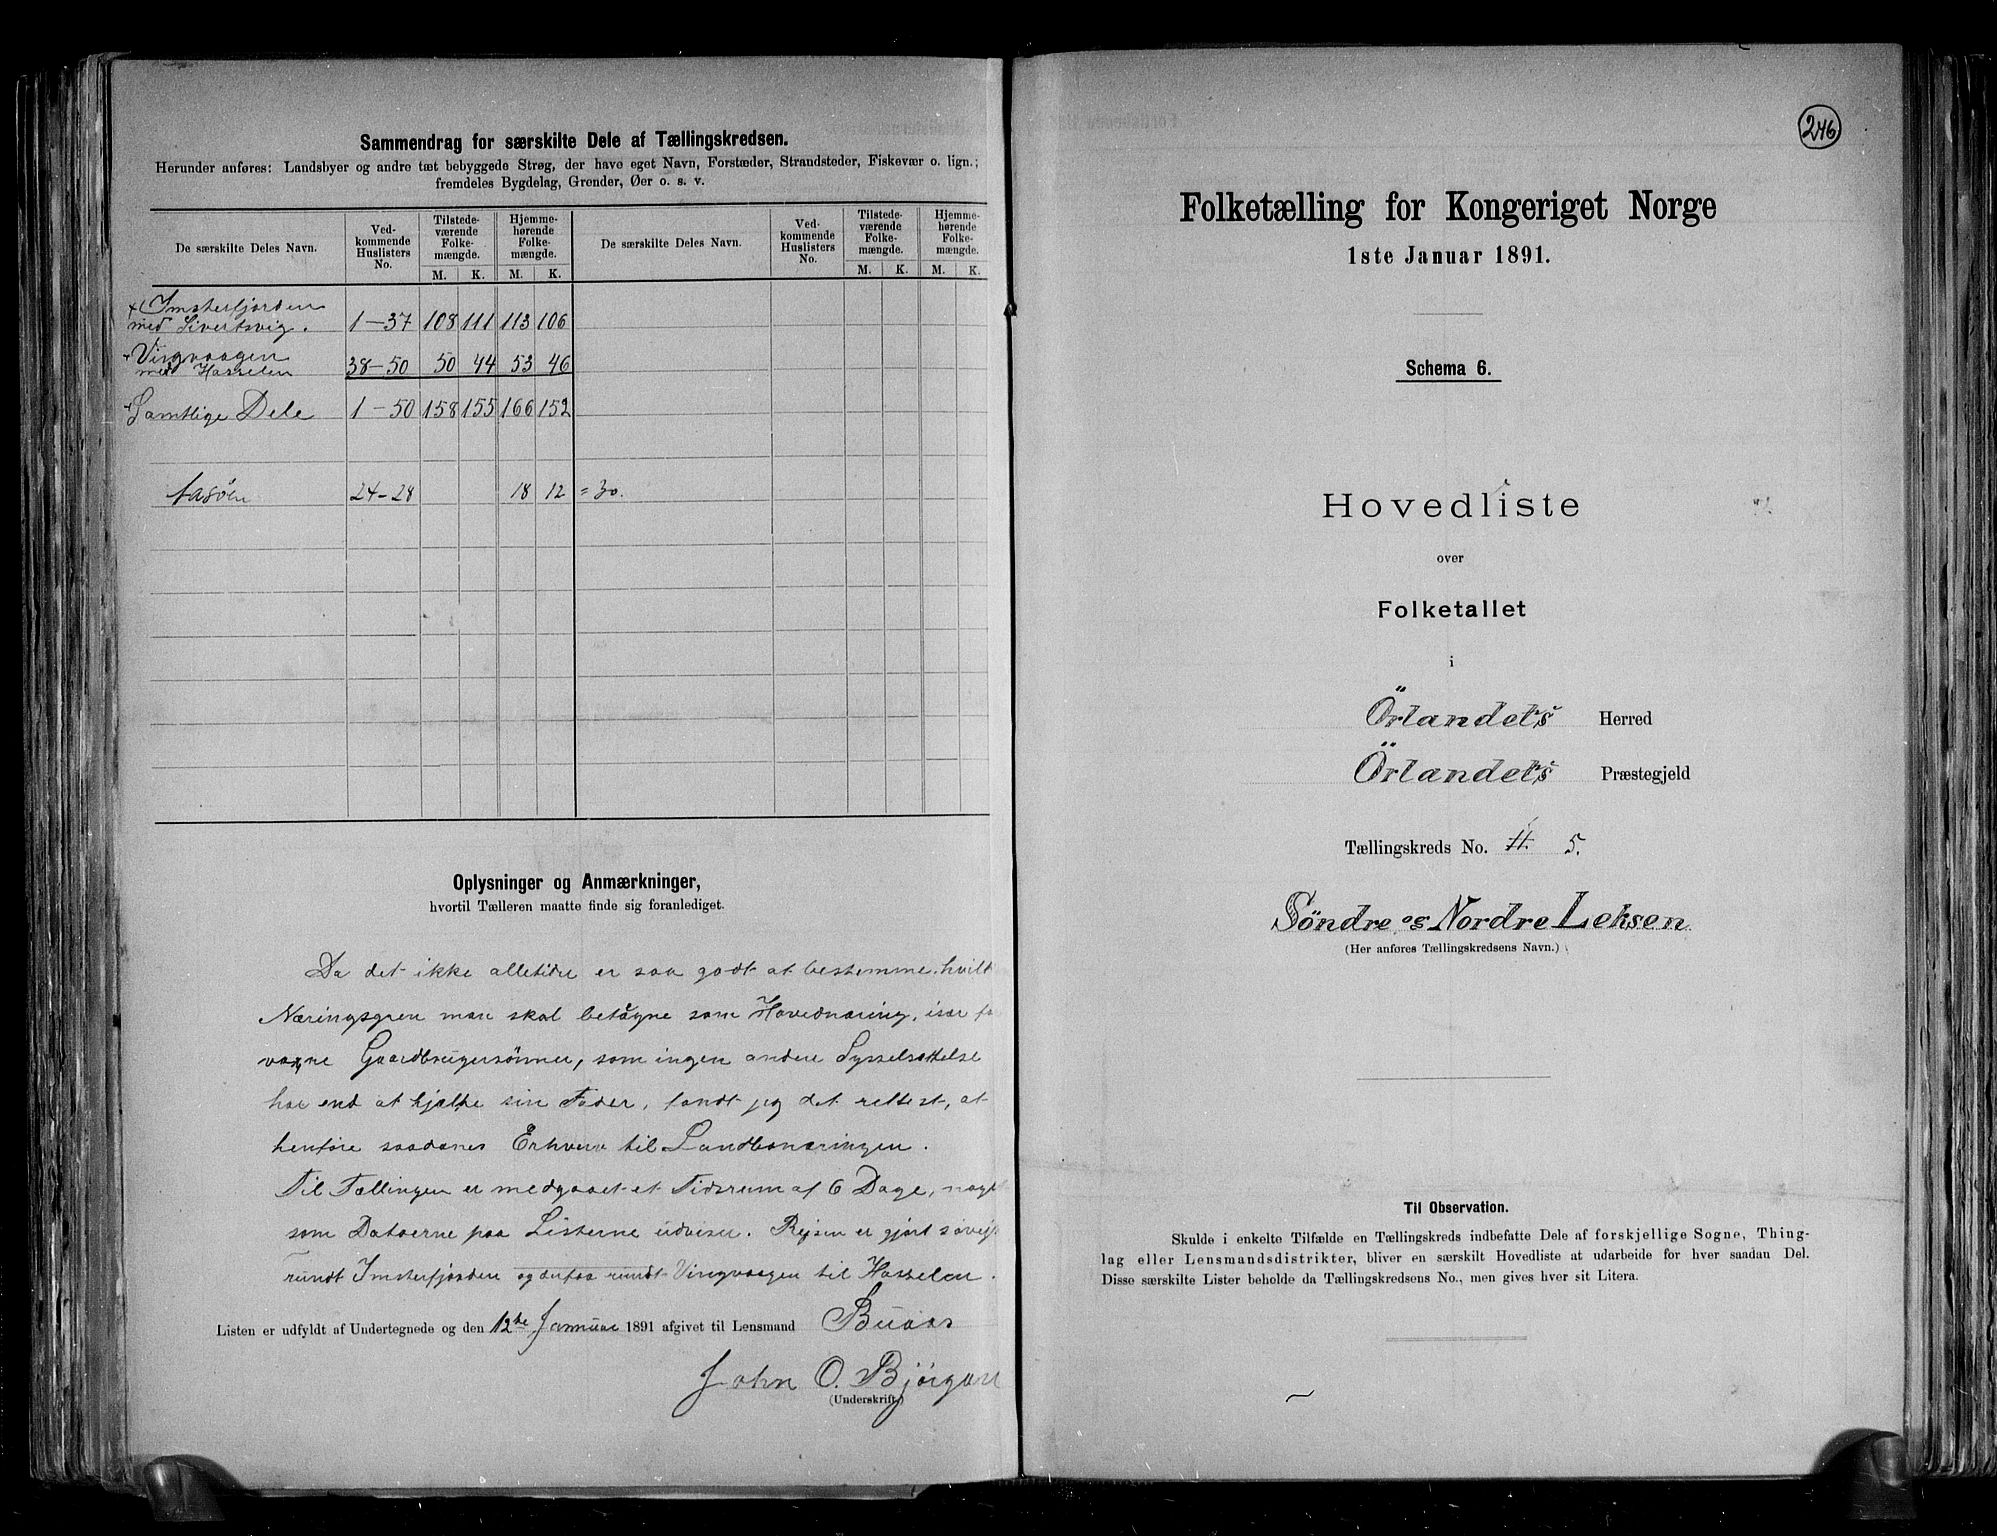 Sammendrag for særskilte Dele af Tællingskredsen.
Herunder anføres: Landsbyer og andre tæt bebyggede Strøg, der have eget Navn, Forstæder, Strandsteder, Fiskevær o. lign.;
fremdeles Bygdelag, Grender, Øer o. s. v.
De særskilte Deles Navn. Ved-kommende Huslisters No. Tilstede-værende Folke-mængde. Hjemme-hørende Folke-mængde. De særskilte Deles Navn. Ved-kommende Huslisters No. Tilstede-værende Folke-mængde. Hjemme-hørende Folke-mængde.
M. K. M. K. M. K. M. K.
Imsterfjorden
med Sivertsvig. 1-37 108 111 113 106
Vingvaagen
med Hasselen 38-50 50 44 53 46
Samtlige Dele 1-50 158 155 166 152
24-28 18 12 = 30.
Oplysninger og Anmærkninger,
hvortil Tælleren maatte finde sig foranlediget.
Da det ikke alletider er saa godt at bestemme, hvilk
Næringsgren man skal betegne som Hovednæring, især
voxne Gaardbrugersønner, som ingen anden Sysselsættelse
har end at hjælpe sin Fader, fandt jeg det rettest, at
henføre saadanes Erhverv til Landbonæringen.
Til Tællingen er medgaaet et Tidsrum af 6 Dage,
som Datoerne paa Listerne udviser. Rejsen er gjort
rundt Imsterfjorden og derfra rundt Vingvaagen til Hasselen.
Listen er udfyldt af Undertegnede og den 12te Januar 1891 afgivet til Lensmand Buaas
John O. Bjørgan
(Underskrift.)
246
Folketælling for Kongeriget Norge
1ste Januar 1891.
Schema 6.
Hovedliste
over
Folketallet
i
Örlandets Herred
Örlandets Præstegjeld
Tællingskreds No. 11. 5.
Söndre og Nordre Leksen
(Her anføres Tællingskredsens Navn.)
Til Observation.
Skulde i enkelte Tilfælde en Tællingskreds indbefatte Dele af forskjellige Sogne, Thing-
lag eller Lensmandsdistrikter, bliver en særskilt Hovedliste at udarbeide for hver saadan Del.
Disse særskilte Lister beholde da Tællingskredsens No., men gives hver sit Litera.